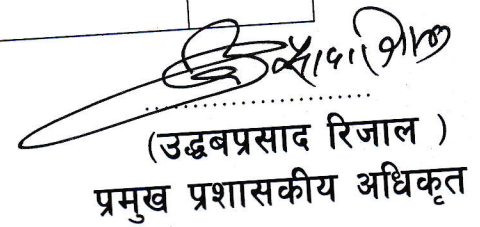 (उद्धबप्रसाद रिजाल )
प्रमुख प्रशासकीय अधिकृत